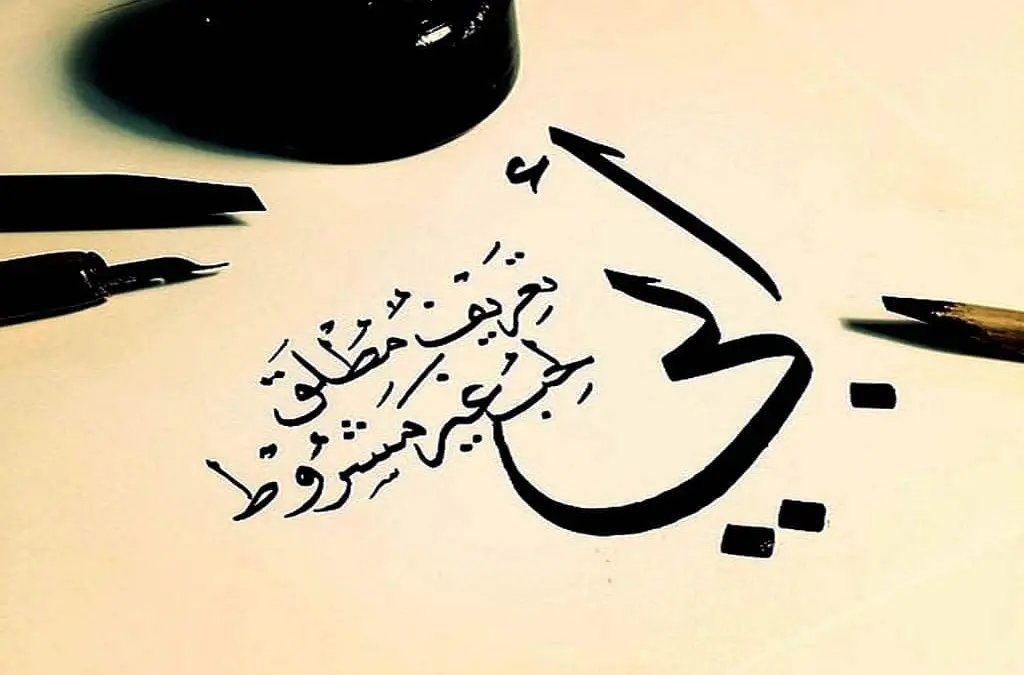 أبي
تعريف مُطْلَق
لِحُب غير مَشروُط